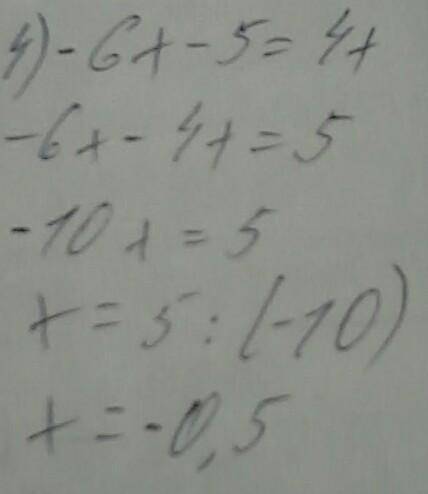 4) -6x - 5 = 4x
-6x - 4x = 5
-10x = 5
x = 5 : (-10)
x = -0,5